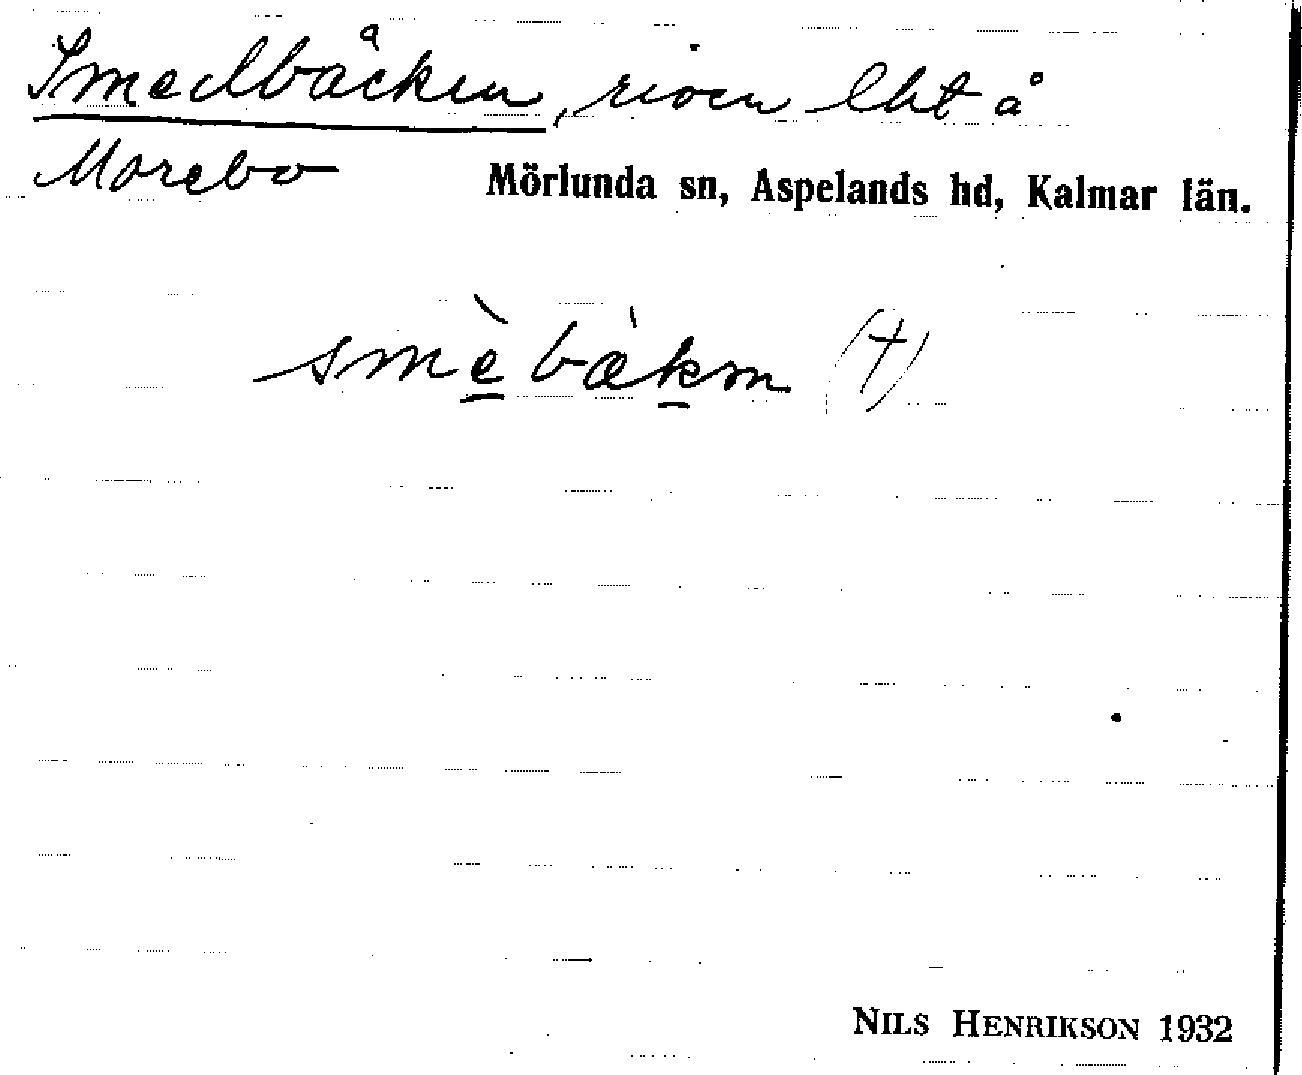 Smedbäcken, riven lht å
Morebo Mörlunda sn, Aspelands hd, Kalmar län.
smèbækm (†)
NILS HENRIKSON 1932